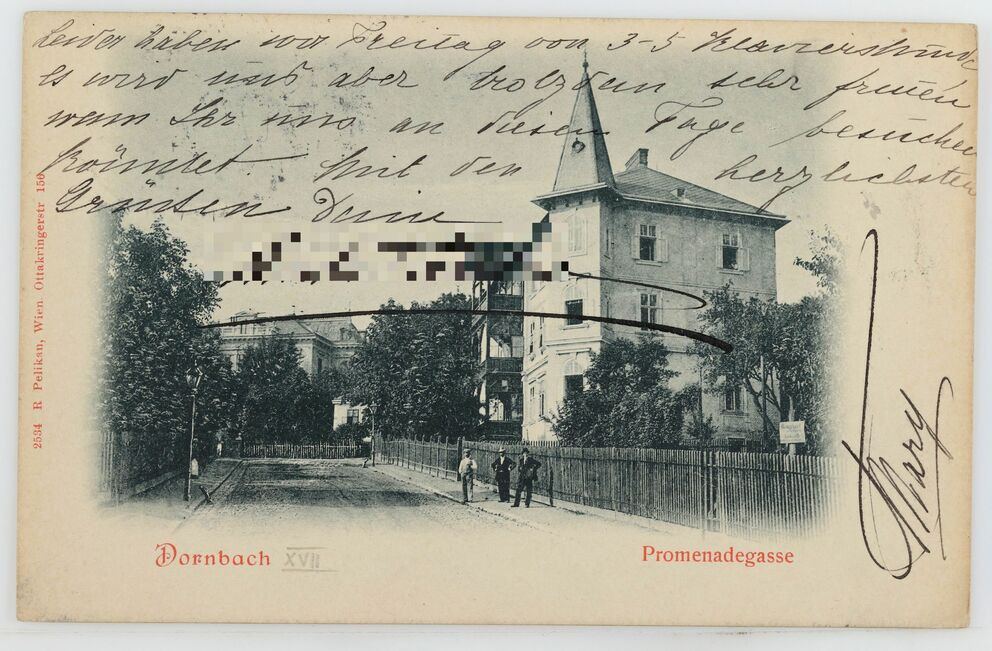 Leider haben wir Freitag von 3-5 Klavierstunde
es wird uns aber trotzdem sehr freuen
wenn Ihr uns an diesem Tage besuchen
könntet. Mit den herzlichsten
Grüßen Deine
Mary
2534 R Pelikan, Wien Ottakringerstr 150
Dornbach XVII
Promenadegasse